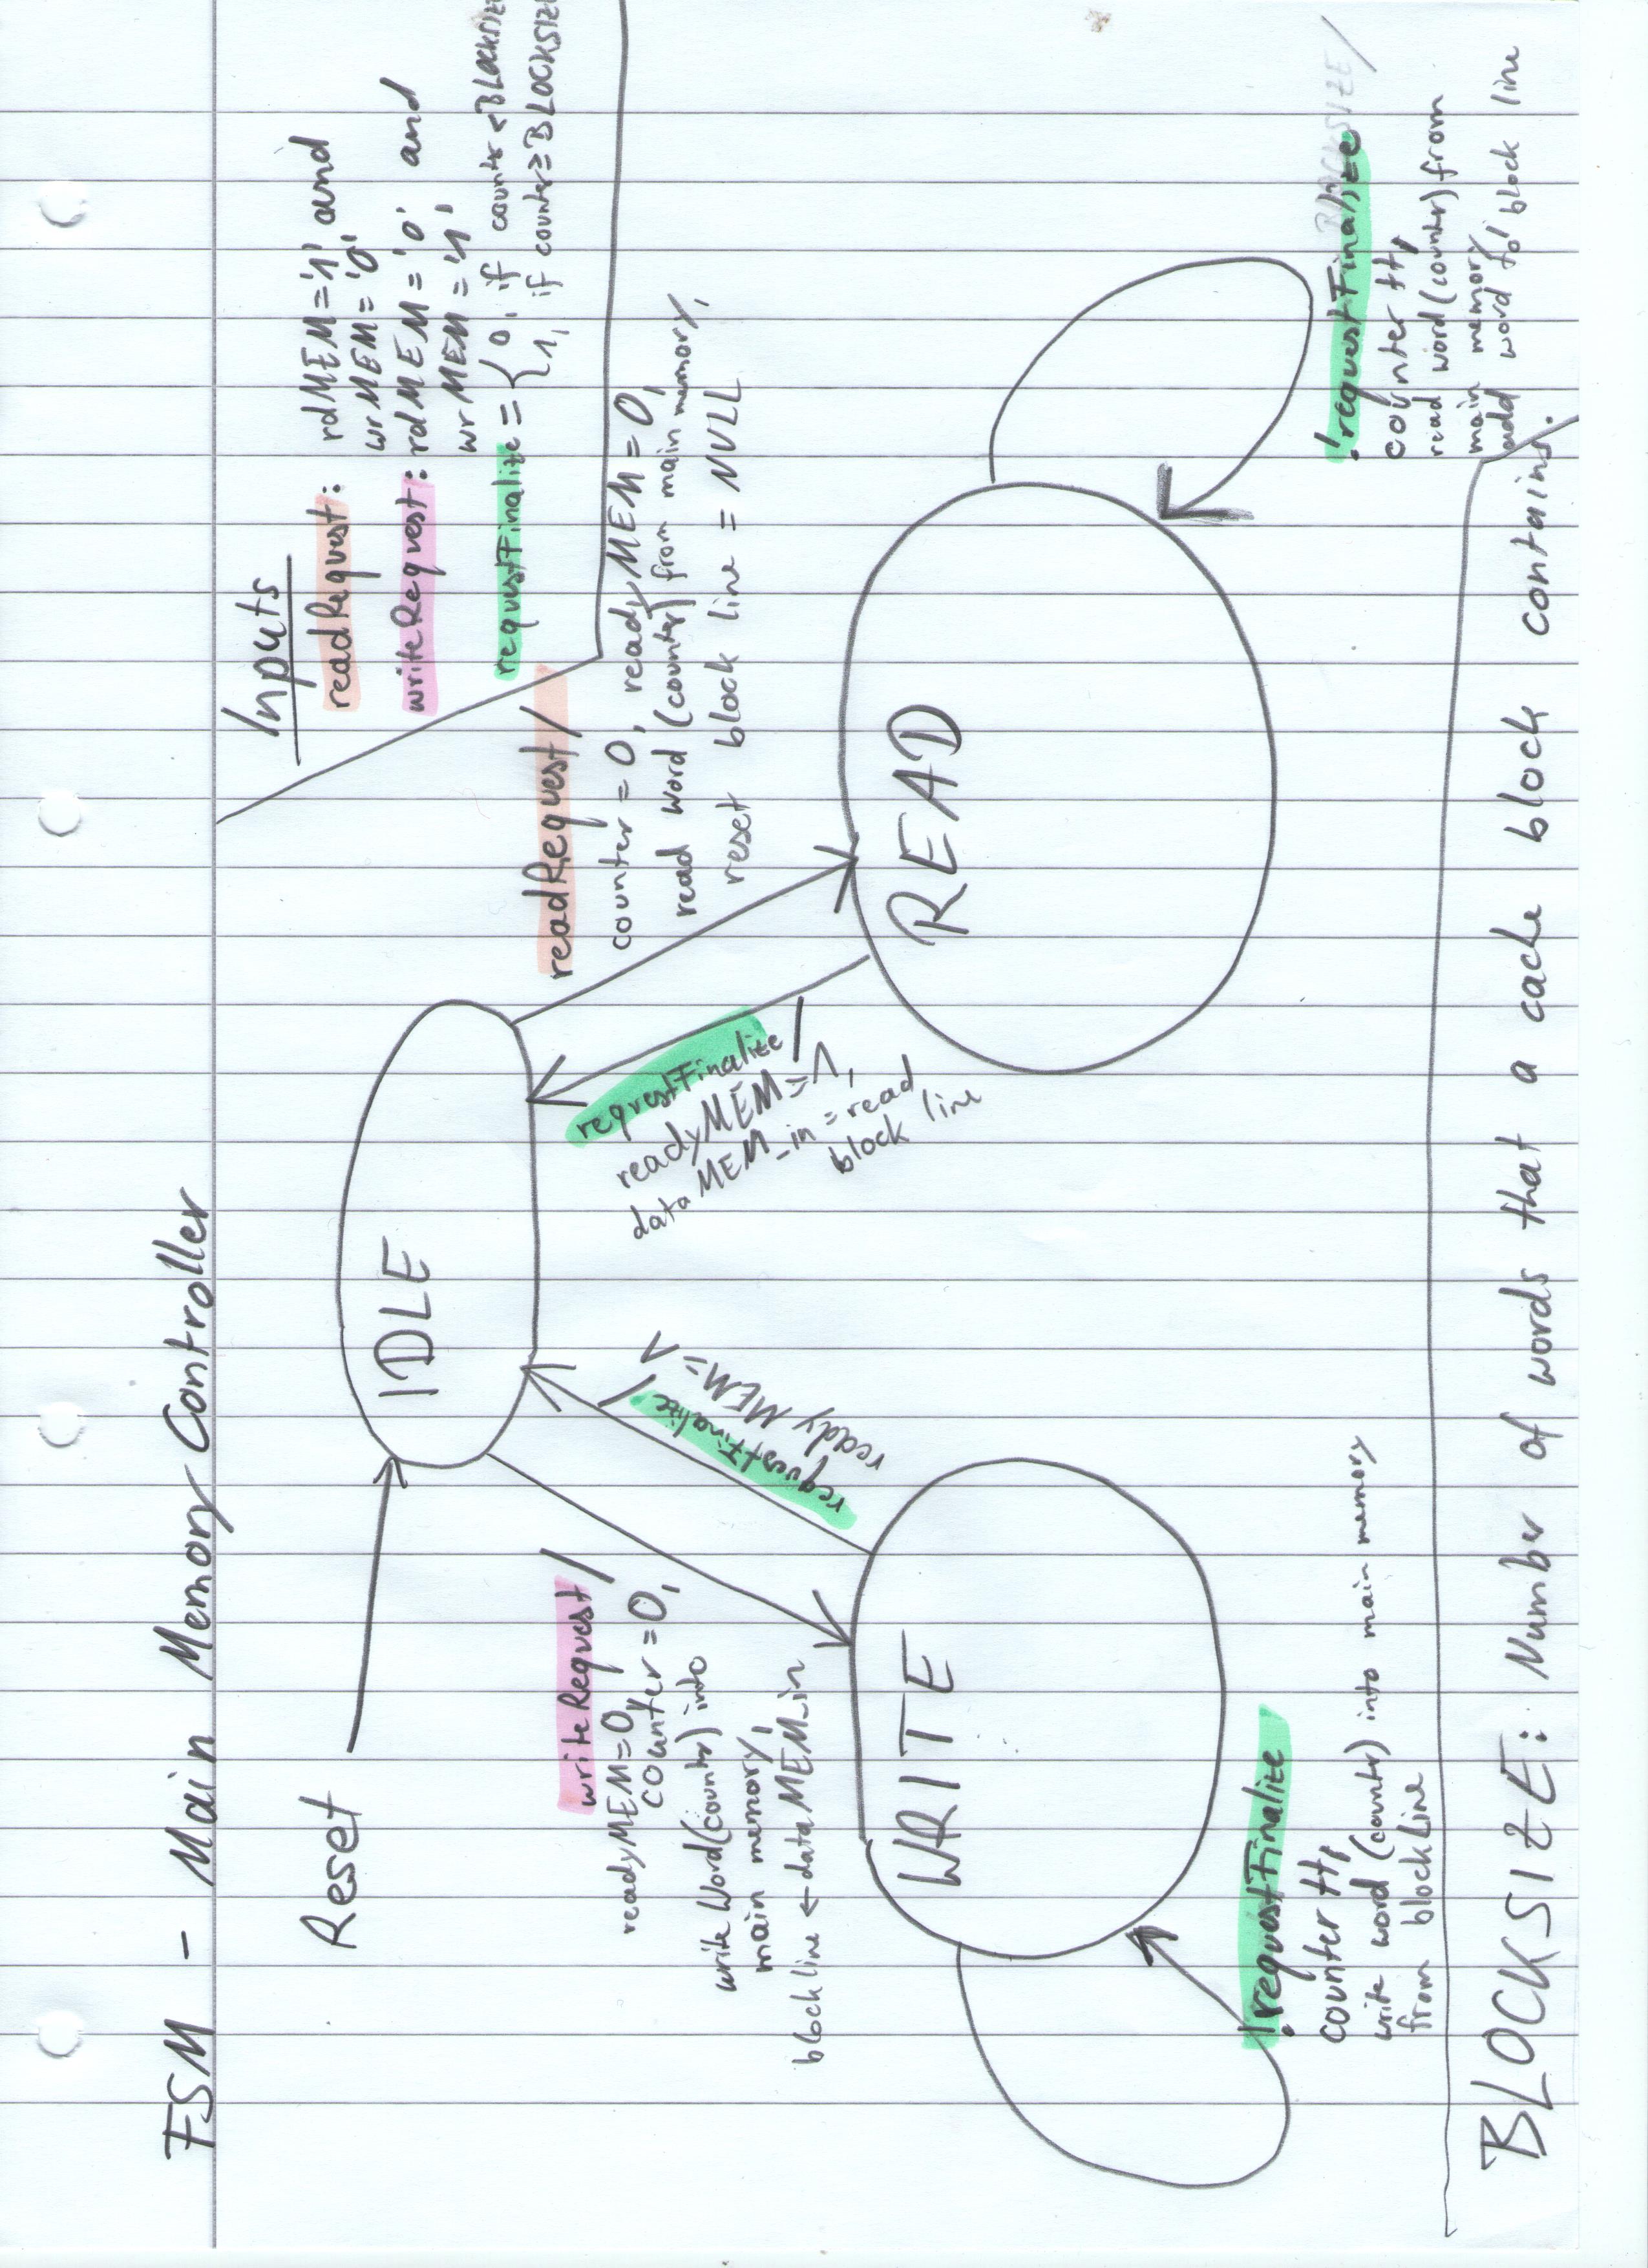 FSM - Main Memory Controller
Inputs
readRequest: rdMEM='1' and
wrMEM='0'
writeRequest: rdMEM='0' and
wrMEM='1'
requestFinalize = { 0, if counter < BLOCKSIZE
1, if counter ≥ BLOCKSIZE
Reset
IDLE
writeRequest/
readyMEM=0,
counter=0,
write Word(counter) into
main memory,
blockline ← dataMEM_in
requestFinalize/
readyMEM=1
requestFinalize/
readyMEM=1,
dataMEM_in = read
block line
readRequest/
counter = 0, readyMEM=0,
read word (counter) from main memory,
reset block line = NULL
WRITE
READ
!requestFinalize
counter ++,
write word (counter) into main memory
from blockLine
BLOCKSIZE/
!requestFinalize
counter ++,
read word (counter) from
main memory,
add word to block line
BLOCKSIZE: Number of words that a cache block contains.